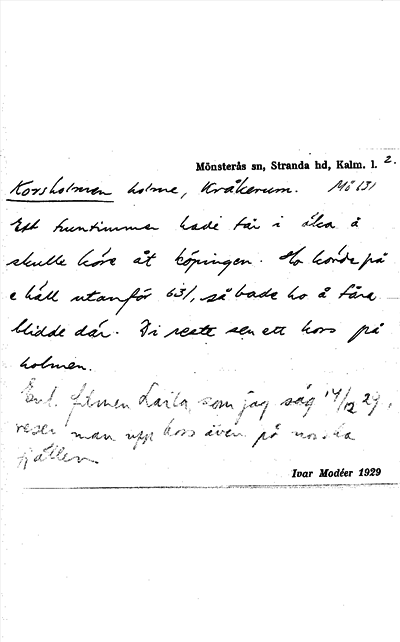 Mönsterås sn, Stranda hd, Kalm. l. 2.
Korsholmen holme, Kråkerum. Mö 131
Ett fruntimmer hade får i öka å
skulle köre åt köpingen. Ho körde på
e häll utanför 631, så både ho å fåra
blidde där. Di reste sen ett kors på
holmen.
Enl. filmen Laila, som jag såg 17/12 29,
reser man upp kors även på norska
fjällen
Ivar Modéer 1929